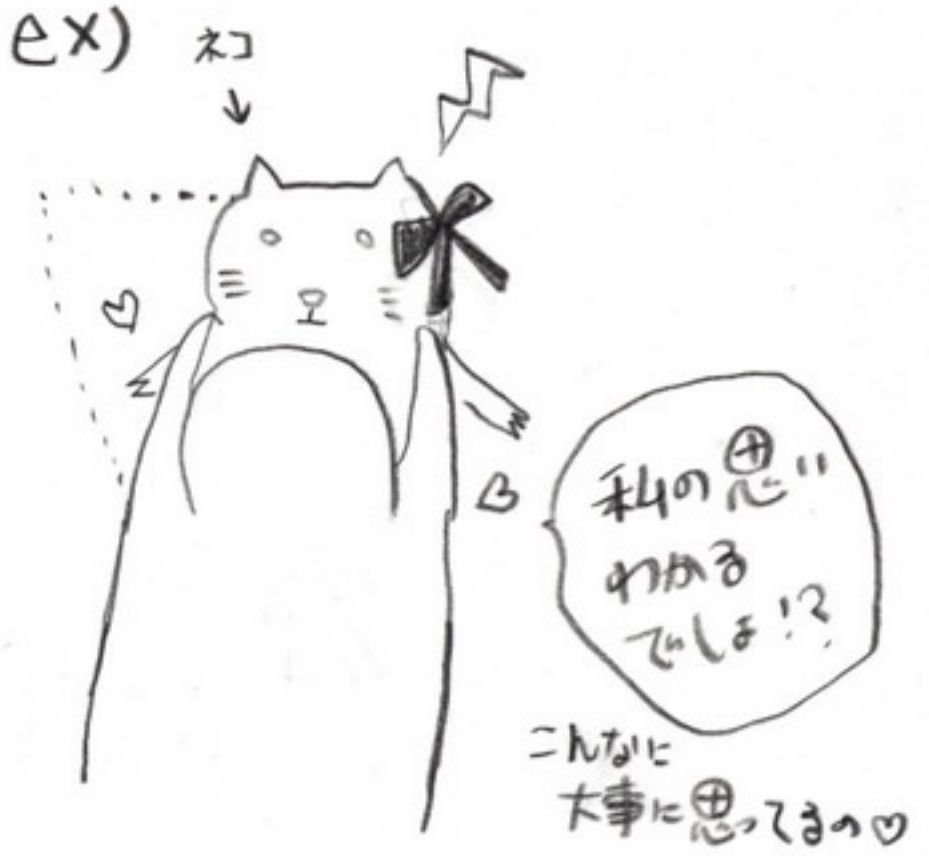 ex) ネコ
私の思い
わかる
でしょ!?
こんなに
大事に思ってるの♡